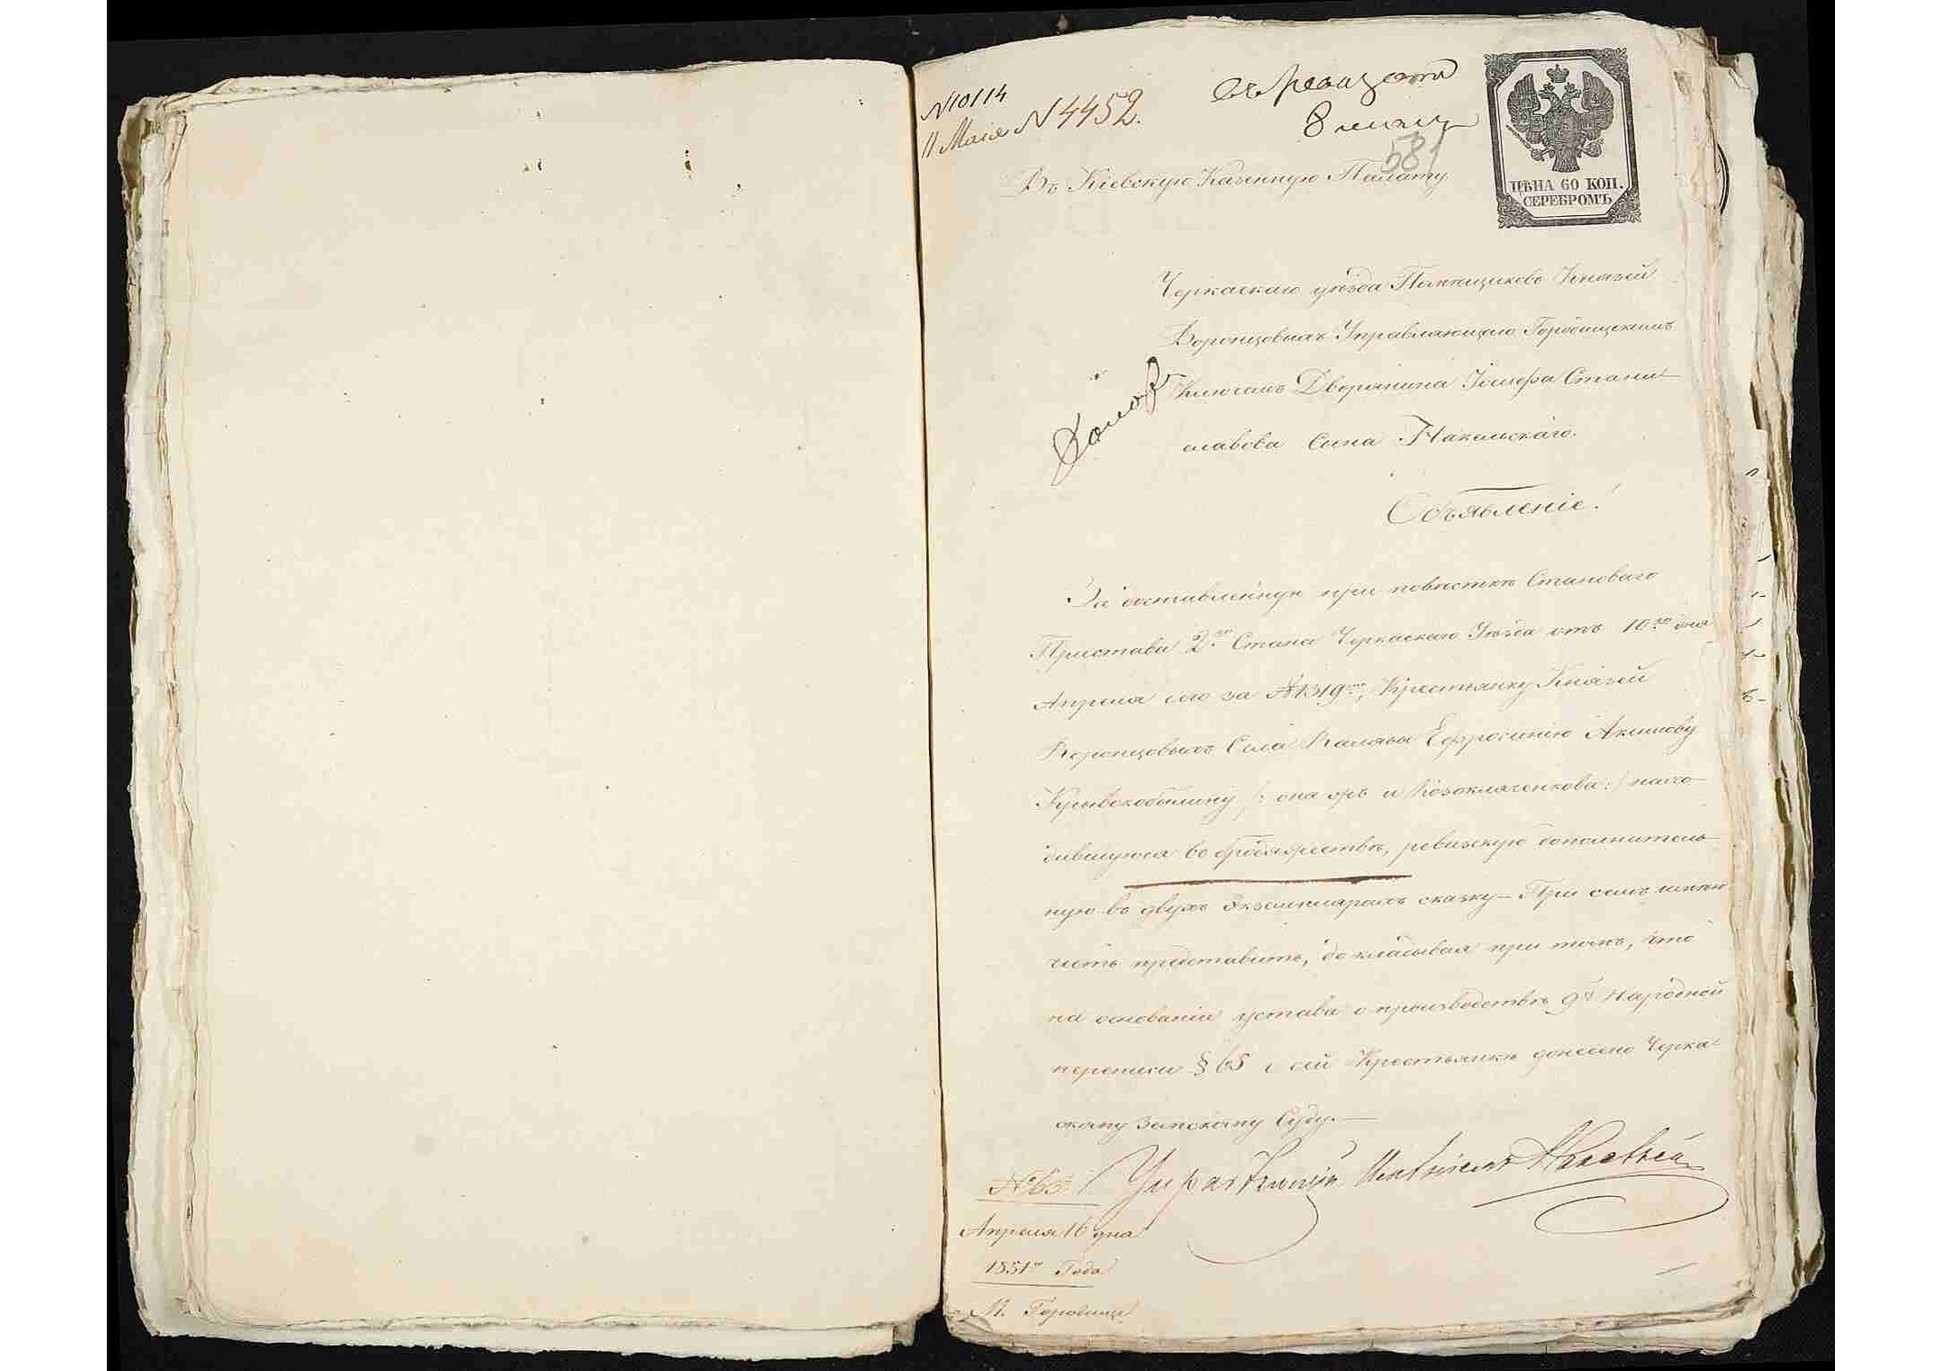 N 10114
11 Маія N 4452.
8
581
Въ Кіевскую Казенную Палату
ЦѢНА 60 КОП.
СЕРЕБРОМЪ
Черкаскаго уѣзда Помѣщиковъ Князей
Воронцовыхъ Управляющаго Городищскимъ
Ключемъ Дворянина Іосифа Стани-
славова Сына
Объявленіе!
доставленную при повѣсткѣ Становаго
Пристава 2го Стана Черкаскаго Уѣзда отъ 10го дня
Апреля сего за N 1319мъ, Крестьянку Князей
Воронцовыхъ Села Ефросинію Акимову
Крывокобылину /: она жъ и Козокляченкова :/ нахо-
дившуюся въ бродяжествѣ, ревизскую дополнитель-
ную въ двухъ Экземплярахъ сказку — При семъ имѣю
честь представить, докладывая при томъ, что
на основаніи устава о производствѣ 9й Народной
переписи § 65 о сей Крестьянкѣ донесено Черка-
скому Земскому Суду. —
N 65
Апреля 16 дня
1851го Года
М. Городище